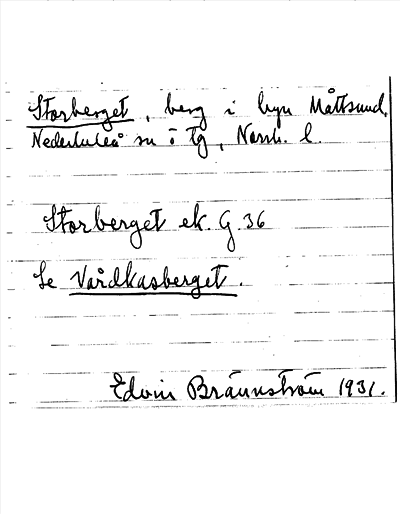 Storberget, berg i byn Måttsund,
Nederluleå sn ö tg, Norrb. l.
Storberget ek. G. 36
Se Vårdkasberget.
Edvin Brännström 1931.